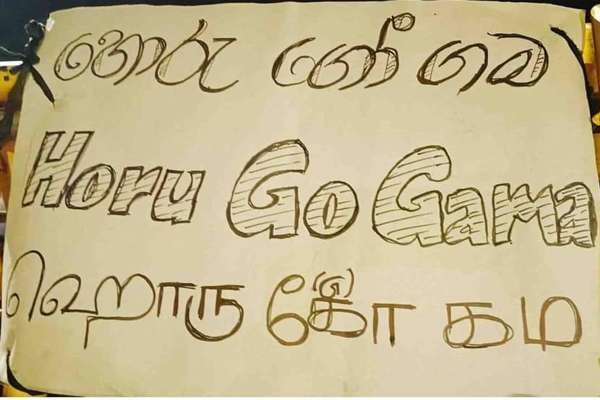 හොරු ගෝ ගම
Horu Go Gama
ஹொரு கோ (g) கம